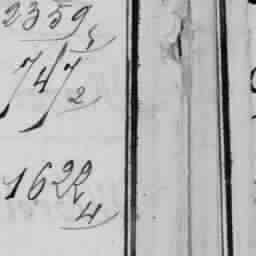 2359
5
747
2
1622
4